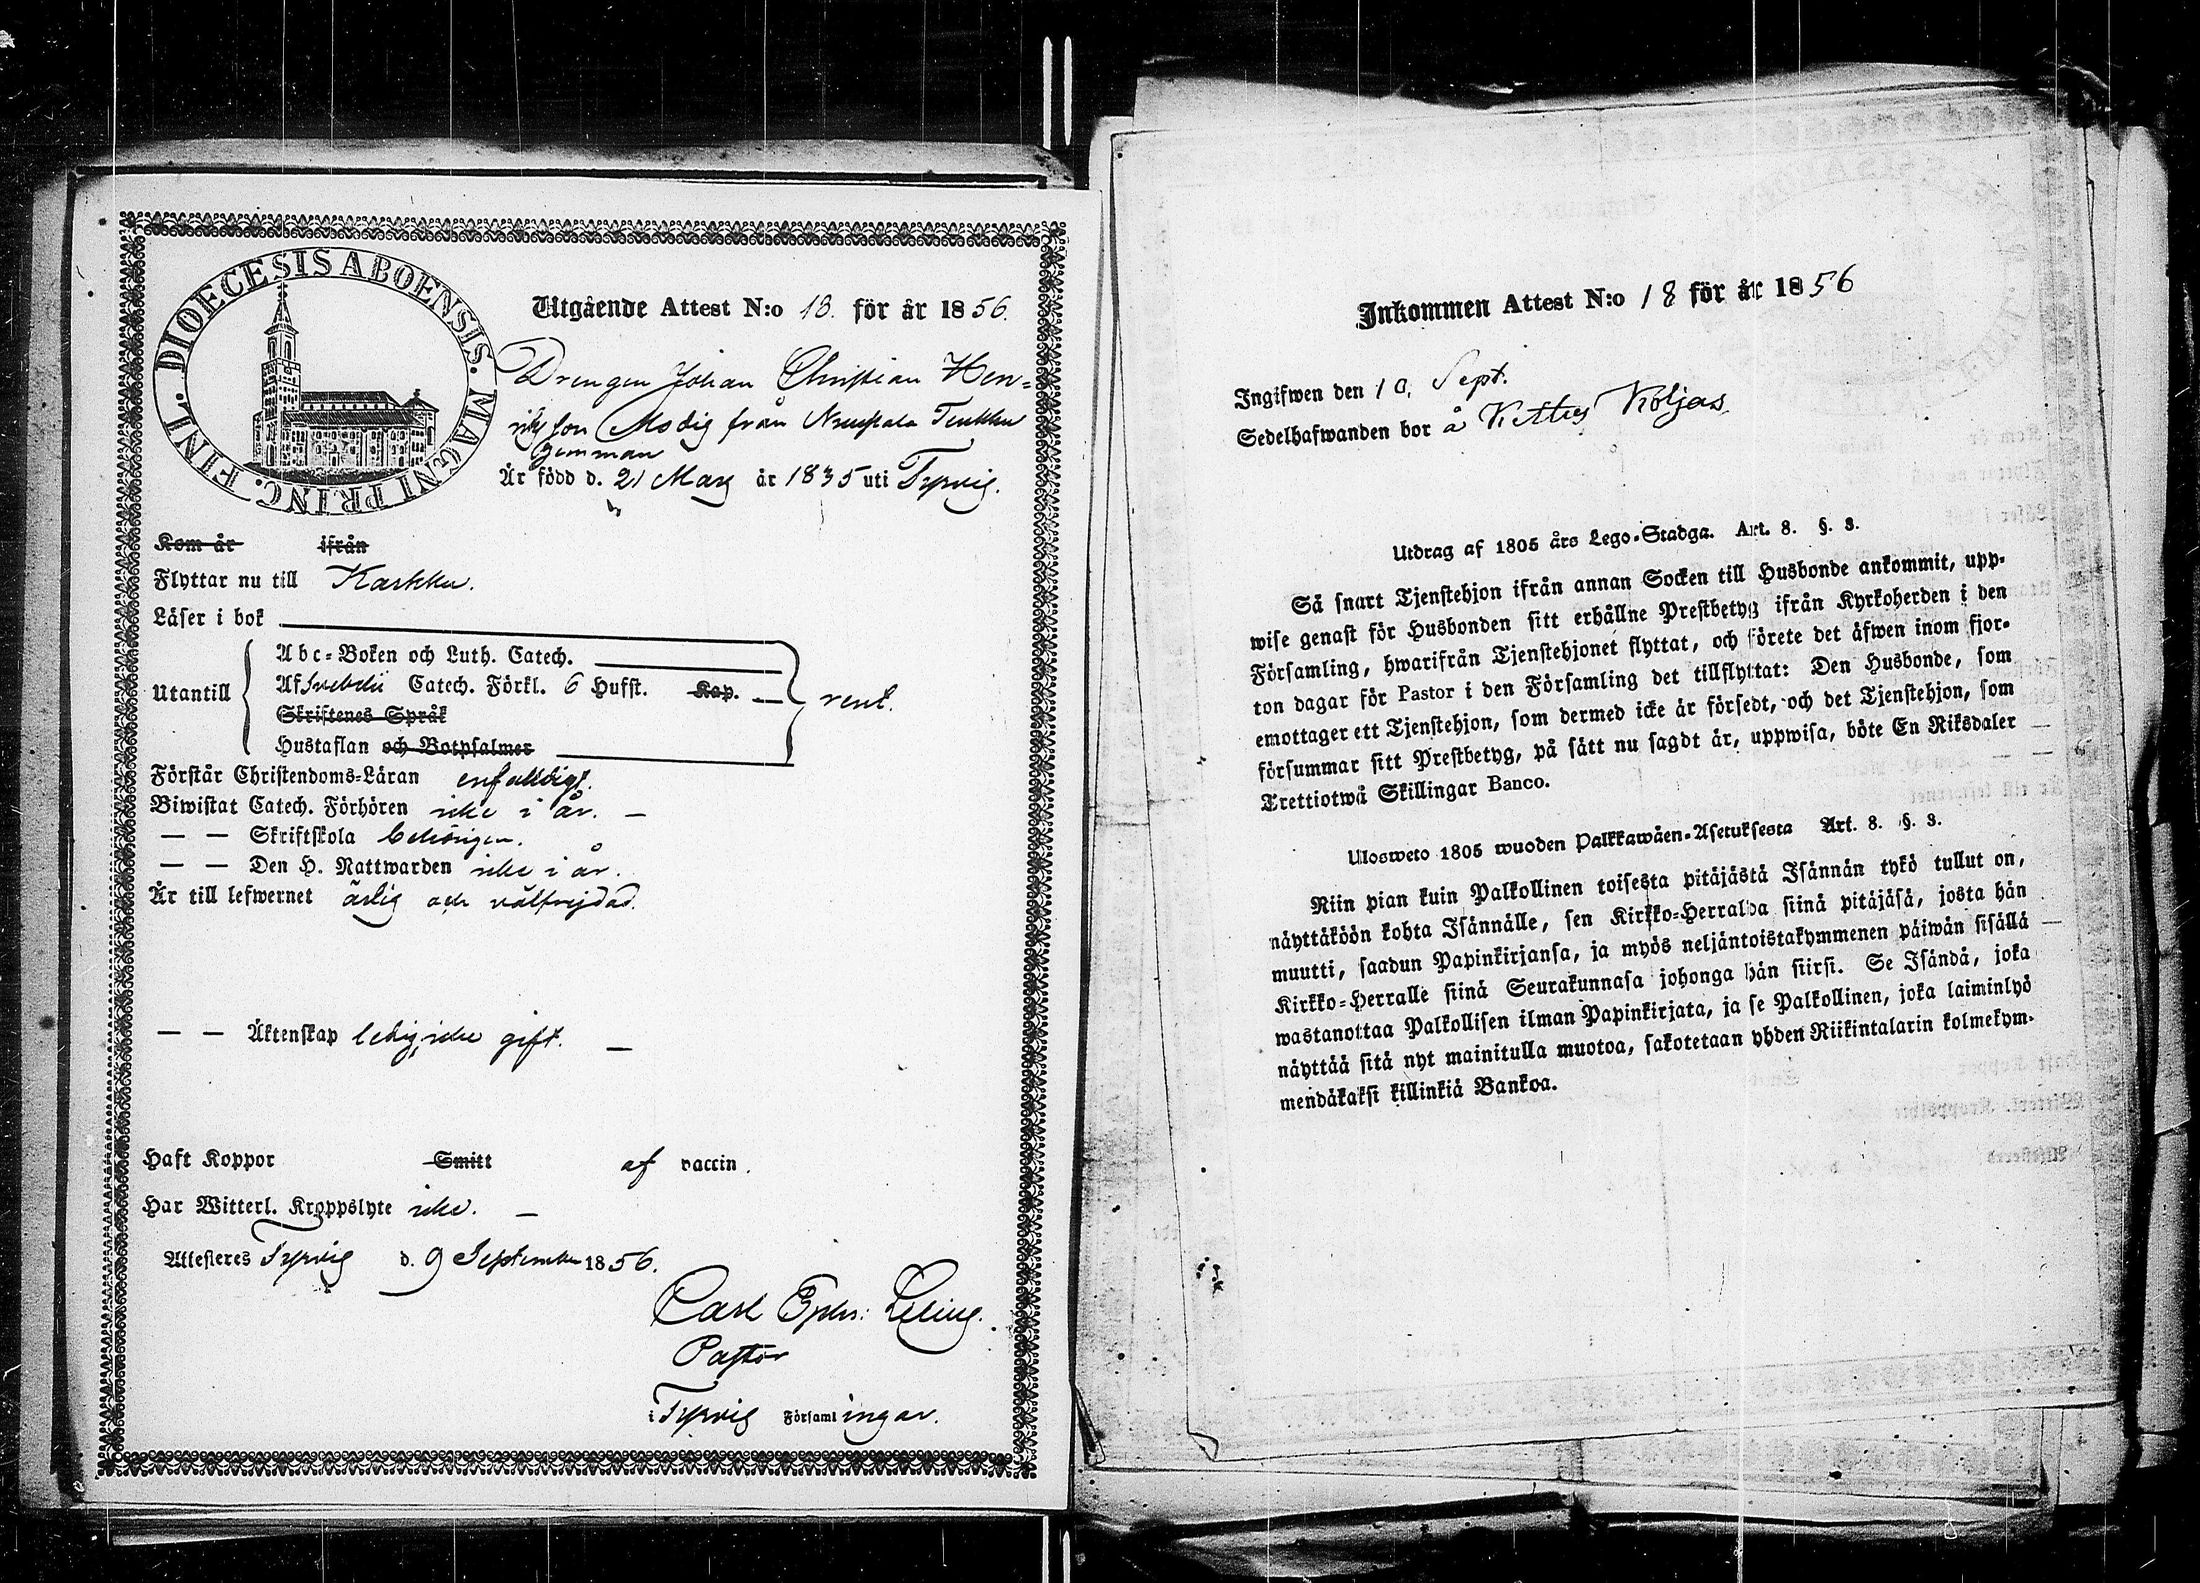 DIOECESIS ABOENSIS. MAGNI PRINC. FINL.
Utgående Attest N:o 13. för år 1856.
Drengen Johan Christian Hen=
rikson Modig från
Är född d. 21 Mars år 1835 uti Tyrvis.
Kom år ifrån
Flyttar nu till Karkku.
Läser i bok
Utantill
Abc-Boken och Luth. Catech.
Af Svebelii Catech. Förkl. 6 Hufst. Kap. —
Skriftenes Språk
Hustaflan och Botpsalmer
rent.
Förstår Christendoms-Läran enfalldigt.
Biwistat Catech. Förhören icke i år. —
— — Skriftskola behörigen.
— — Den H. Nattwarden icke i år.
Är till lefwernet ärlig och välfrejdad.
— — Äktenskap ledig, icke gift. —
Haft Koppor Smitt af vaccin.
Har Witterl. Kroppslyte icke. —
Attesteres Tyrvis d. 9 September 1856.
Carl
Pastor
i Tyrvis Församlingar.
Inkommen Attest N:o 18 för år 1856
Ingifwen den 10. Sept.
Sedelhafwanden bor å
Utdrag af 1805 års Lego-Stadga. Art. 8. §. 3.
Så snart Tjenstehjon ifrån annan Socken till Husbonde ankommit, upp-
wise genast för Husbonden sitt erhållne Prestbetyg ifrån Kyrkoherden i den
Församling, hwarifrån Tjenstehjonet flyttat, och förete det äfwen inom fjor-
ton dagar för Pastor i den Församling det tillflyttat: Den Husbonde, som
emottager ett Tjenstehjon, som dermed icke är försedt, och det Tjenstehjon, som
försummar sitt Prestbetyg, på sätt nu sagdt är, uppwisa, böte En Riksdaler
Trettiotwå Skillingar Banco.
Ulosweto 1805 wuoden Palkkawäen-Asetuksesta Art. 8. §. 3.
Niin pian kuin Palkollinen toisesta pitäjästä Isännän tykö tullut on,
näyttäköön kohta Isännälle, sen Kirkko-Herralda siinä pitäjäsä, josta hän
muutti, saadun Papinkirjansa, ja myös neljäntoistakymmenen päiwän sisällä
Kirkko-Herralle siinä Seurakunnasa johonga hän siirsi. Se Isändä, joka
wastanottaa Palkollisen ilman Papinkirjata, ja se Palkollinen, joka laiminlyö
näyttää sitä nyt mainitulla muotoa, sakotetaan yhden Riikintalarin kolmekym-
mendäkaksi killinkiä Bankoa.